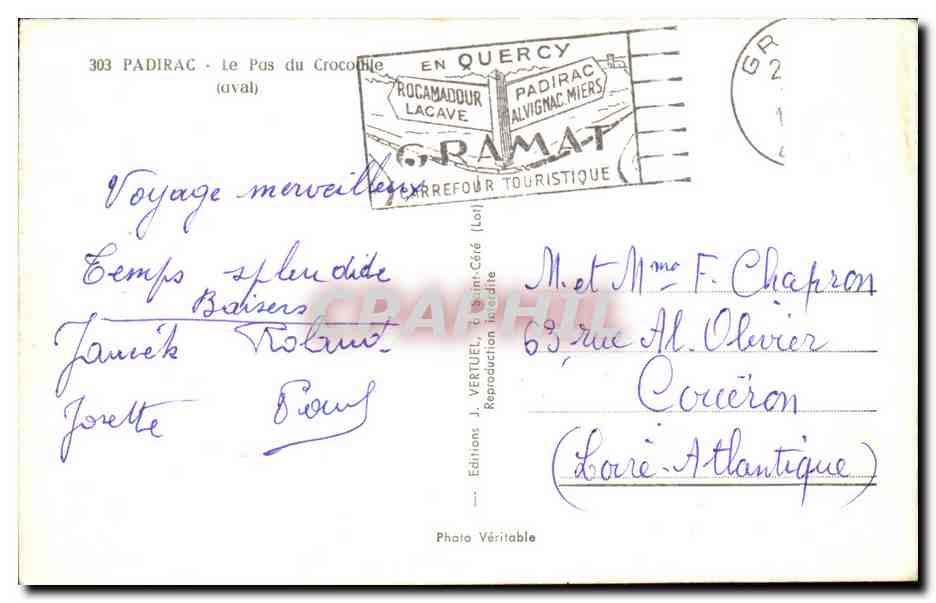 303 PADIRAC - Le Pas du Crocodile
(aval)
EN QUERCY
ROCAMADOUR
LACAVE
PADIRAC
ALVIGNAC. MIERS
GRAMAT
CARREFOUR TOURISTIQUE
GR
2
1
4
Voyage merveilleux
Temps splendide
Baisers
Janick Roland
Josette Paul
— Editions J. VERTUEL, à Saint-Céré (Lot)
Reproduction interdite
CPAPHIL
M. et Mme F. Chapron
63, rue Al. Olivier
Couëron
(Loire-Atlantique)
Photo Véritable